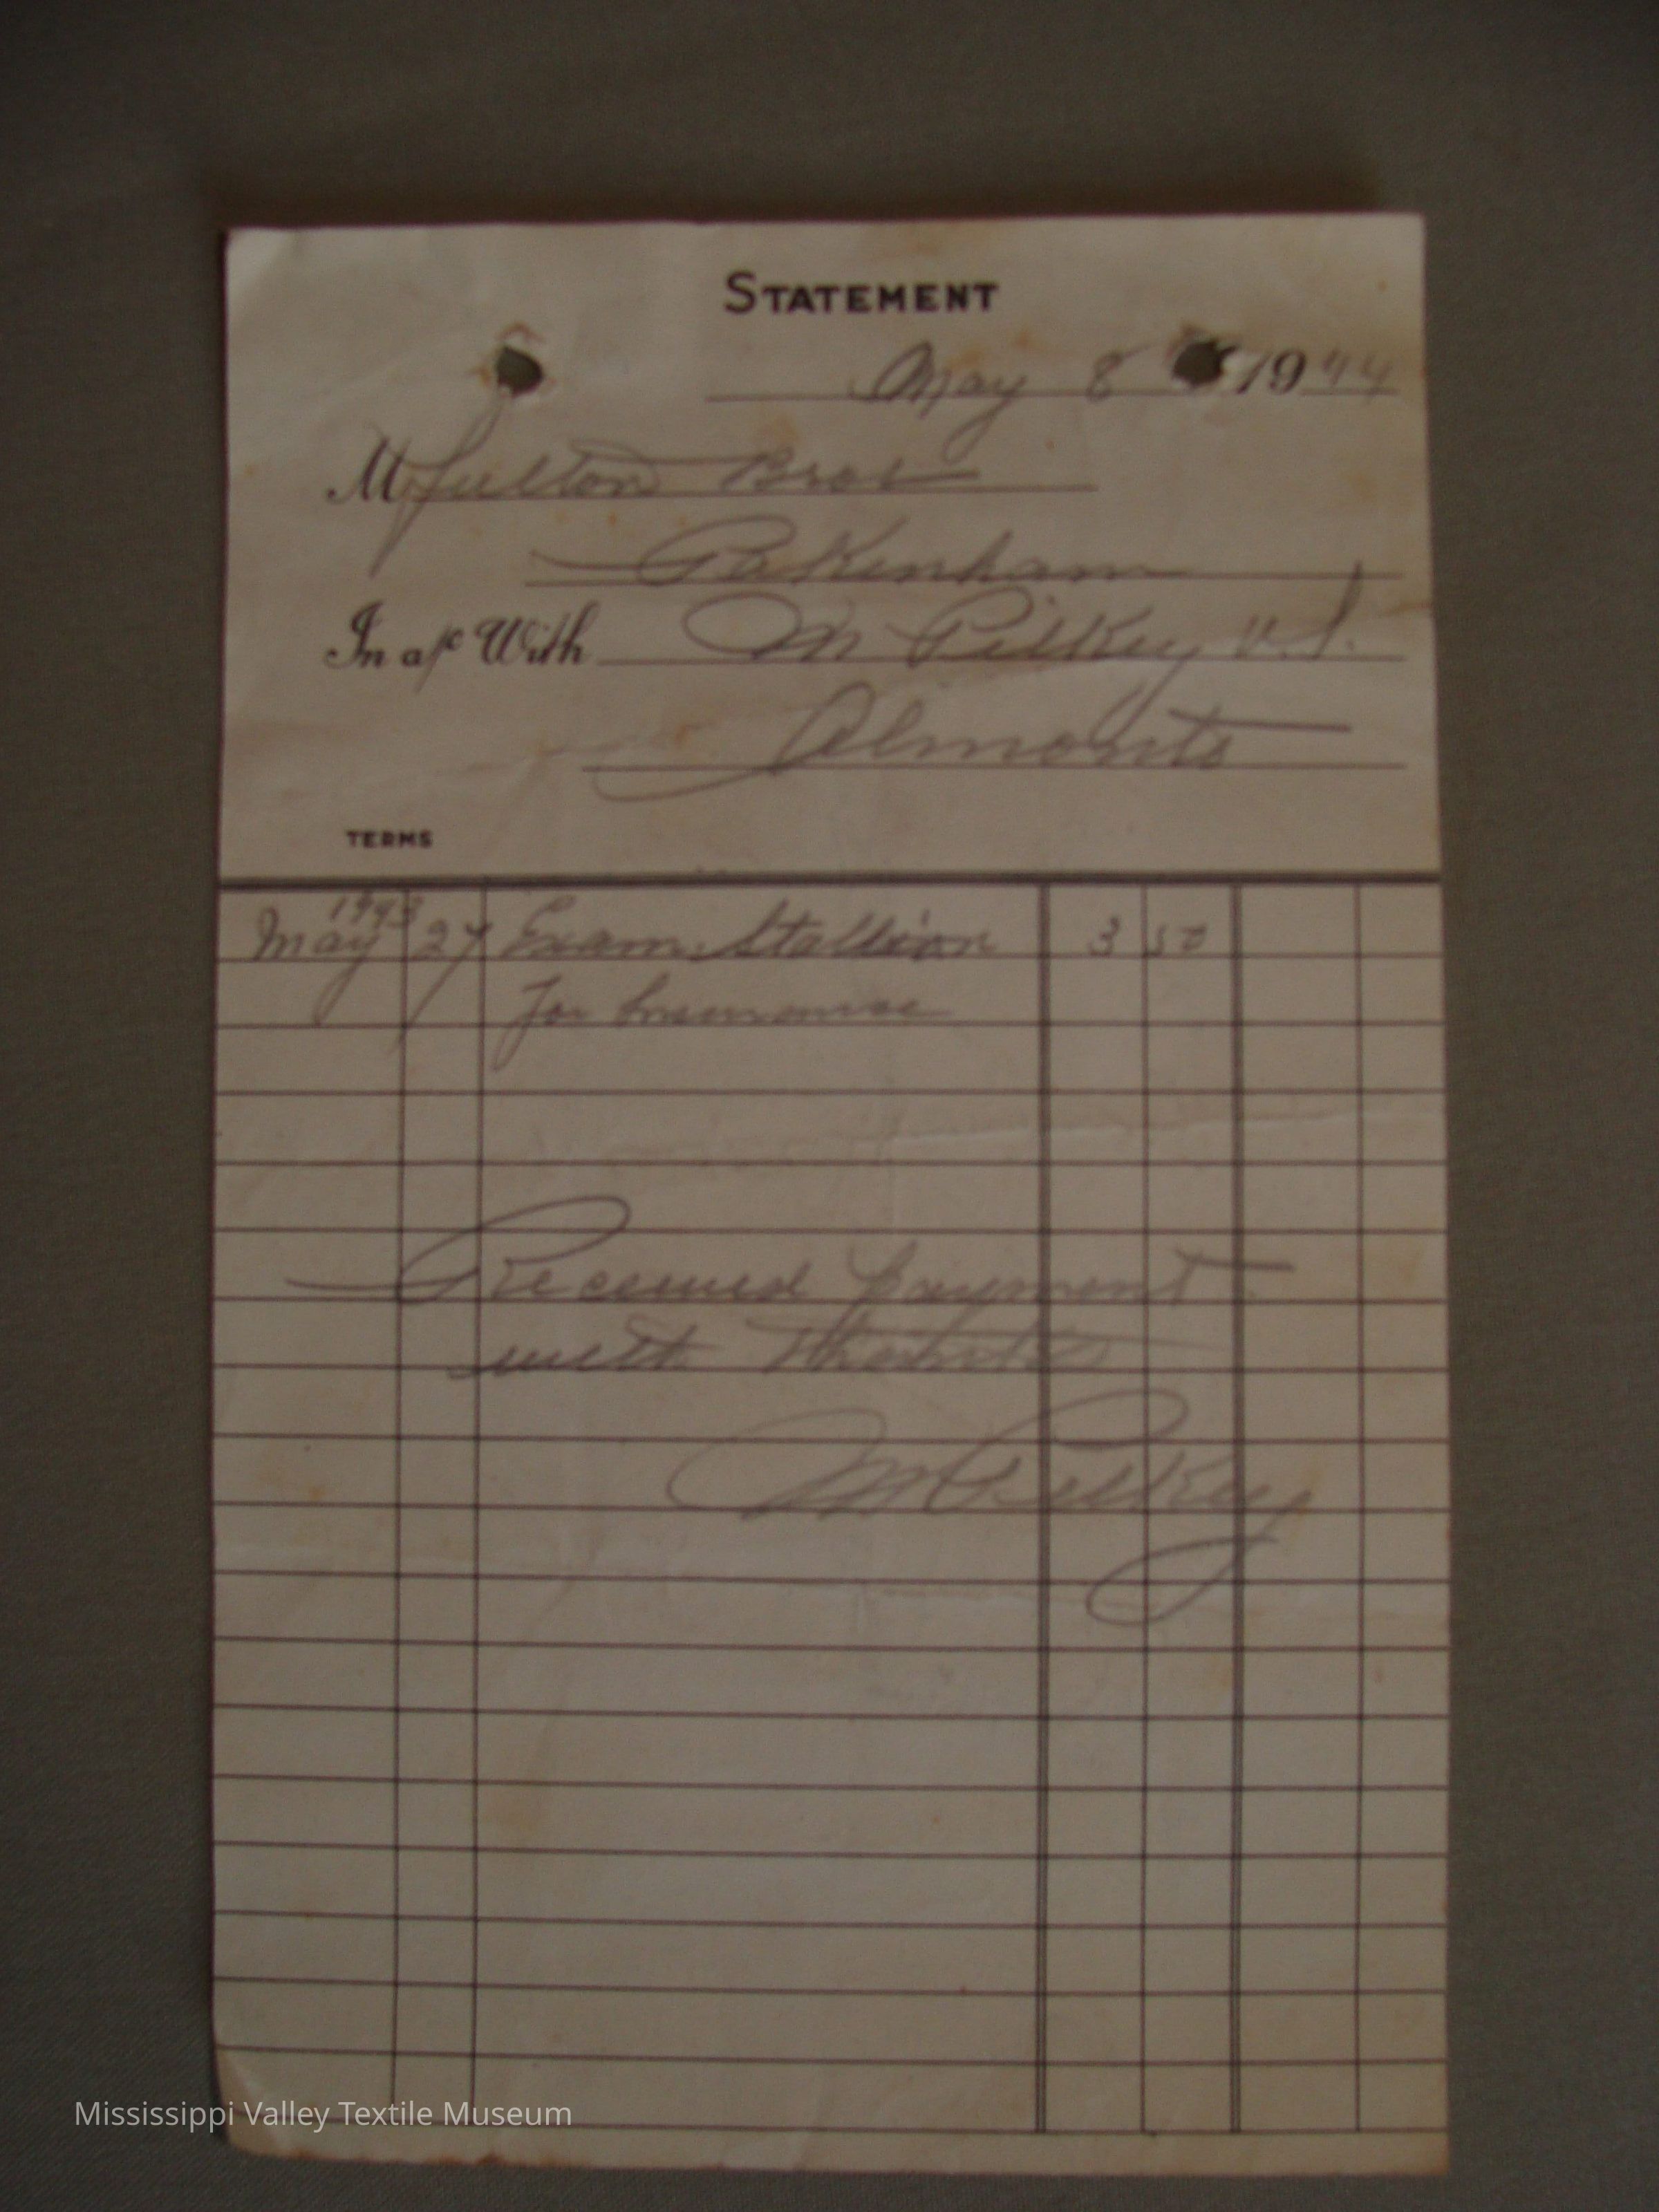 STATEMENT
May 8 1944
M Fulton Bros
Pakenham
In a/c With M Pilkey V.S.
Almonte
TERMS
1943
May 27 Exam. Stallion 3 50
For Insurance
Received payment
with Thanks
M Pilkey
Mississippi Valley Textile Museum